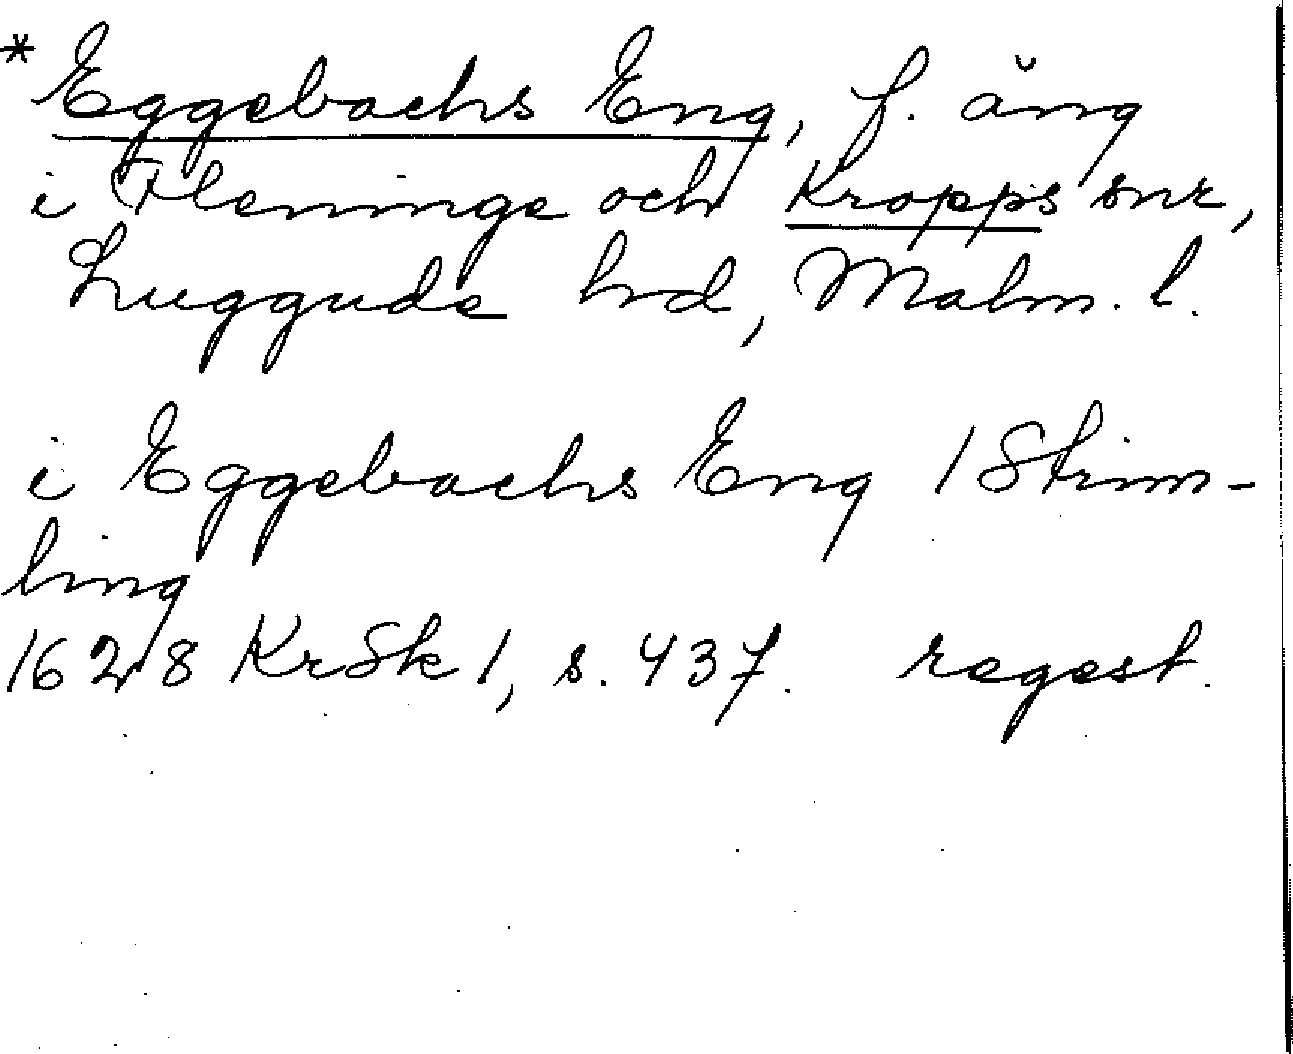 * Eggebachs Eng, f. äng
i Fleninge och Kropps snr,
Luggude hd, Malm. l.
i Eggebachs Eng 1 Strim-
ling
1628 KrSk 1, s. 437. regest.